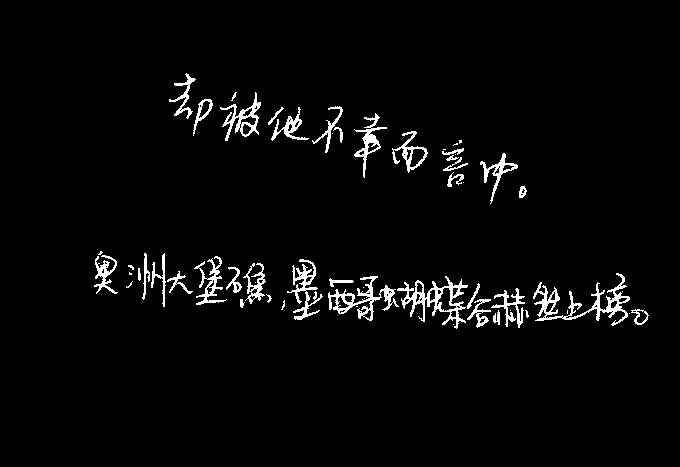 却被他不幸而言中。
澳洲大堡礁,墨西哥蝴蝶谷赫然上榜。